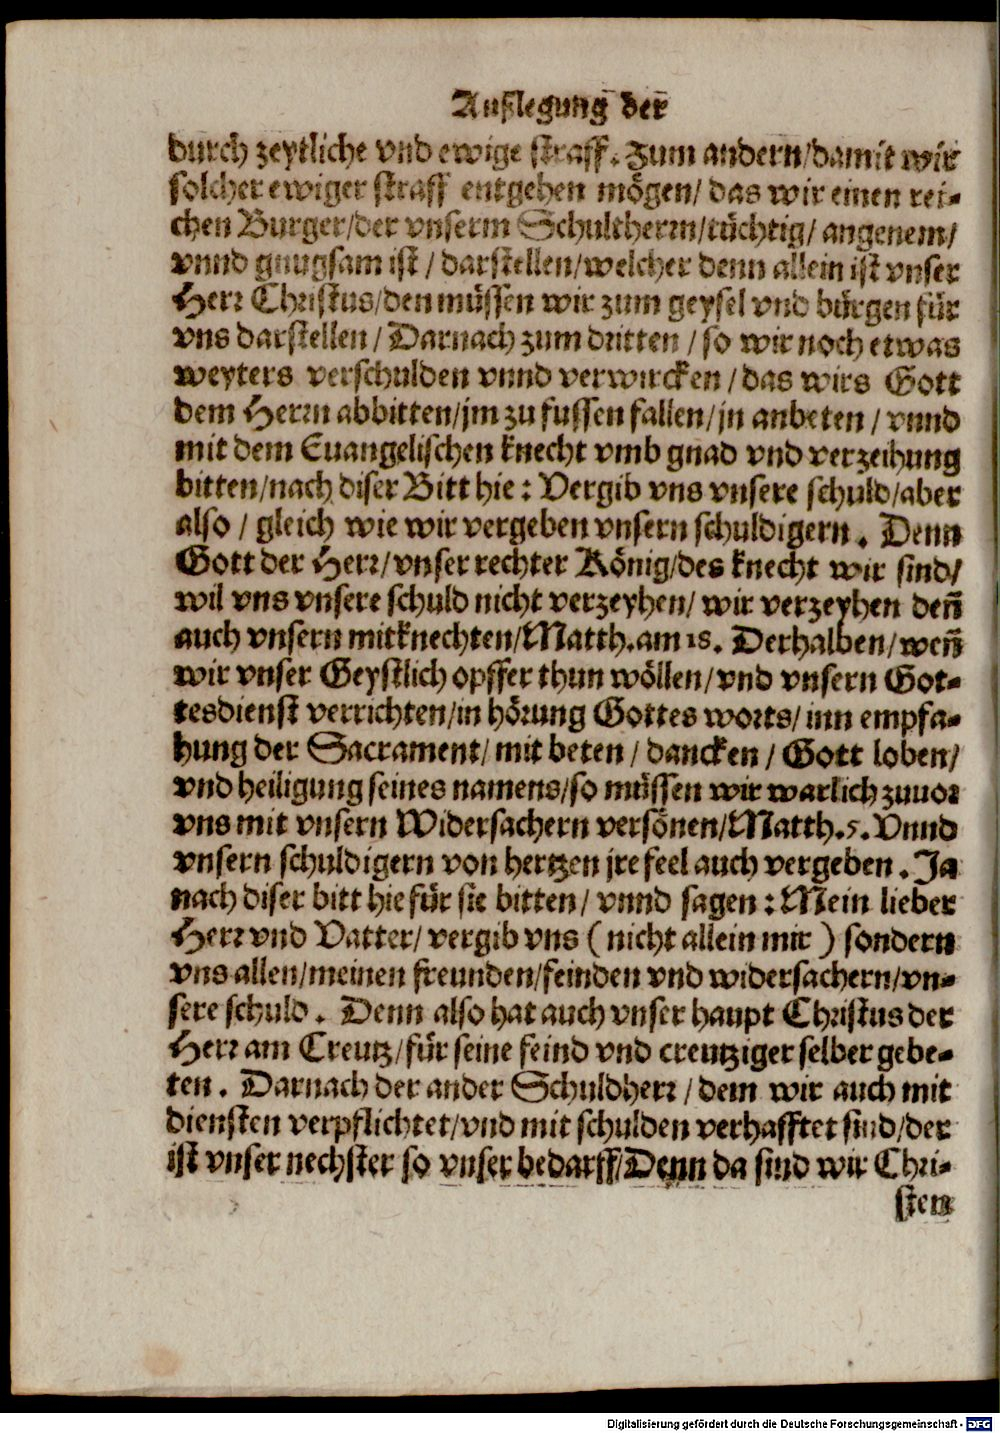 Außlegung der
durch zeytliche vnd ewige straff. Zum andern/damit wir
solcher ewiger straff entgehen mögen/ das wir einen rei-
chen Burger/der vnserm Schultherrn/tüchtig/ angenem/
vnnd gnugsam ist / darstellen/welcher denn allein ist vnser
Herr Christus/den müssen wir zum geysel vnd bürgen für
vns darstellen / Darnach zum dritten / so wir noch etwas
weyters verschulden vnnd verwircken / das wirs Gott
dem Herrn abbitten/jm zu fussen fallen/jn anbeten / vnnd
mit dem Euangelischen knecht vmb gnad vnd verzeihung
bitten/nach diser Bitt hie : Vergib vns vnsere schuld/aber
also / gleich wie wir vergeben vnsern schuldigern. Denn
Gott der Herr/vnser rechter König/des knecht wir sind/
wil vns vnsere schuld nicht verzeyhen/ wir verzeyhen deñ
auch vnsern mitknechten/Matth.am 18. Derhalben/weñ
wir vnser Geystlich opffer thun wöllen/vnd vnsern Got-
tesdienst verrichten/in hörung Gottes worts/ inn empfa-
hung der Sacrament/ mit beten / dancken / Gott loben/
vnd heiligung seines namens/so müssen wir warlich zuuor
vns mit vnsern Widersachern versönen/Matth.5. Vnnd
vnsern schuldigern von hertzen jre feel auch vergeben. Ja
nach diser bitt hie für sie bitten/ vnnd sagen : Mein lieber
Herr vnd Vatter/ vergib vns ( nicht allein mir ) sondern
vns allen/meinen freunden/feinden vnd widersachern/vn-
sere schuld. Denn also hat auch vnser haupt Christus der
Herr am Creutz/für seine feind vnd creutziger selber gebe-
ten. Darnach der ander Schuldherr / dem wir auch mit
diensten verpflichtet/vnd mit schulden verhafftet sind/der
ist vnser nechster so vnser bedarff/Denn da sind wir Chri-
sten
Digitalisierung gefördert durch die Deutsche Forschungsgemeinschaft - DFG